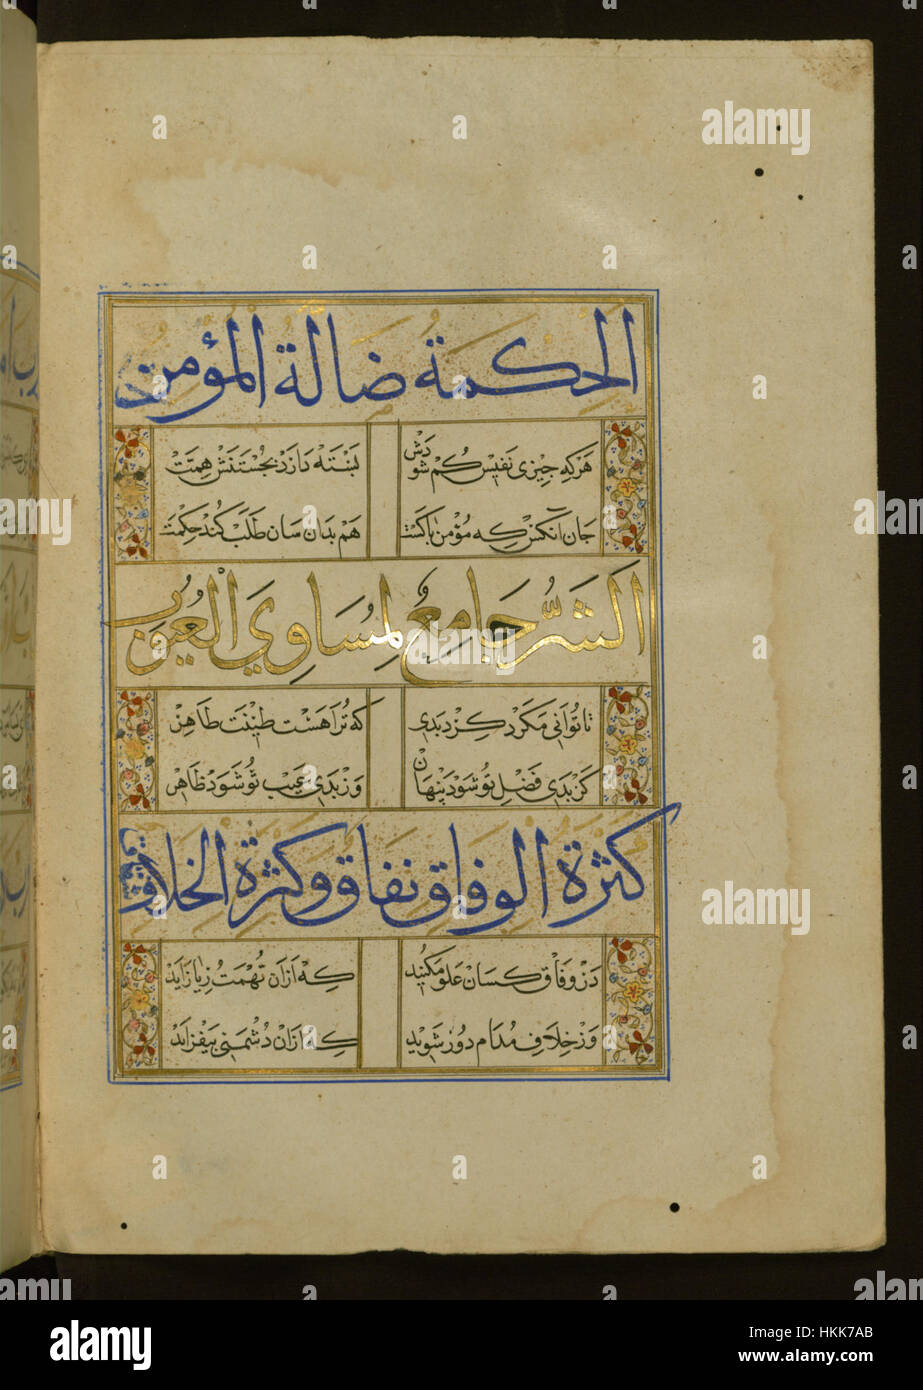 الحكمة ضالة المؤمن
هركه چيزى نفيس كم شودش
بسته دارد بجستنش همت
جان آنكس كه مؤمن پاكست
هم بدان سان طلب كند حكمت
الشر جامع لمساوي العيوب
تا توانى مكرد كرد بدى
كه ترا هست طينت طاهر
كز بدى فضل تو شود پنهان
وز بدى عيب تو شود ظاهر
كثرة الوفاق نفاق وكثرة الخلاف شقاق
در وفاق كسان غلو مكنيد
كه ازان تهمت ريا زايد
وز خلاف مدام دور شويد
كه ازان دشمنى بيفزايد
alamy
alamy
Image ID: HKK7AB
www.alamy.com